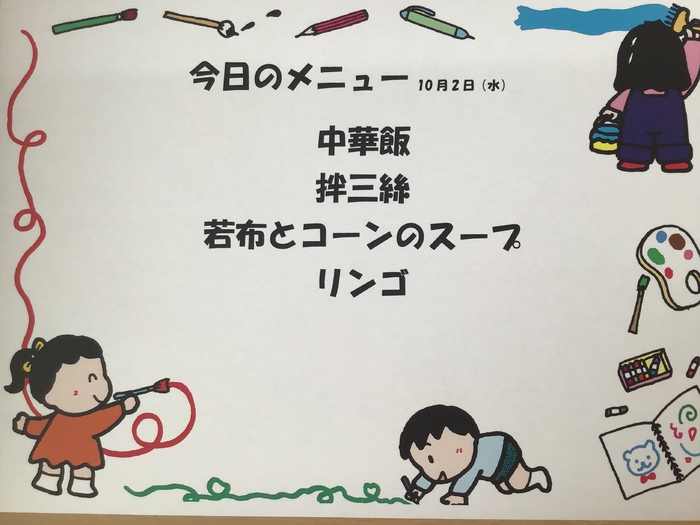 今日のメニュー 10月2日（水）
中華飯
拌三絲
若布とコーンのスープ
リンゴ